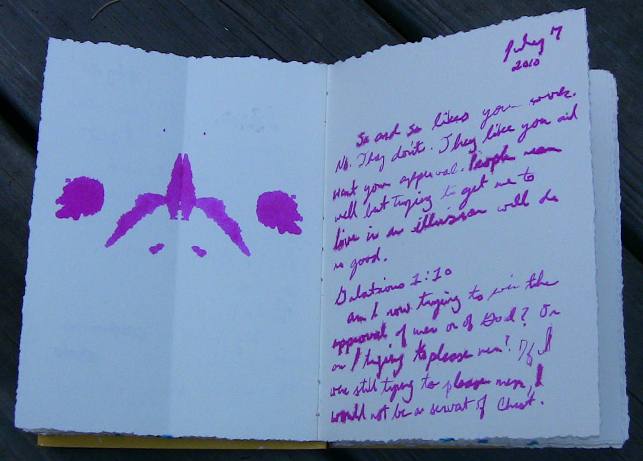 July 7
2010
So and so likes your work.
No. They don't. They like you and
want your approval. People mean
well but trying to get me to
live in an illusion will do
no good.
Galatians 1:10
am I now trying to win the
approval of men or of God? Or
am I trying to please men? If I
were still trying to please men, I
would not be a servant of Christ.